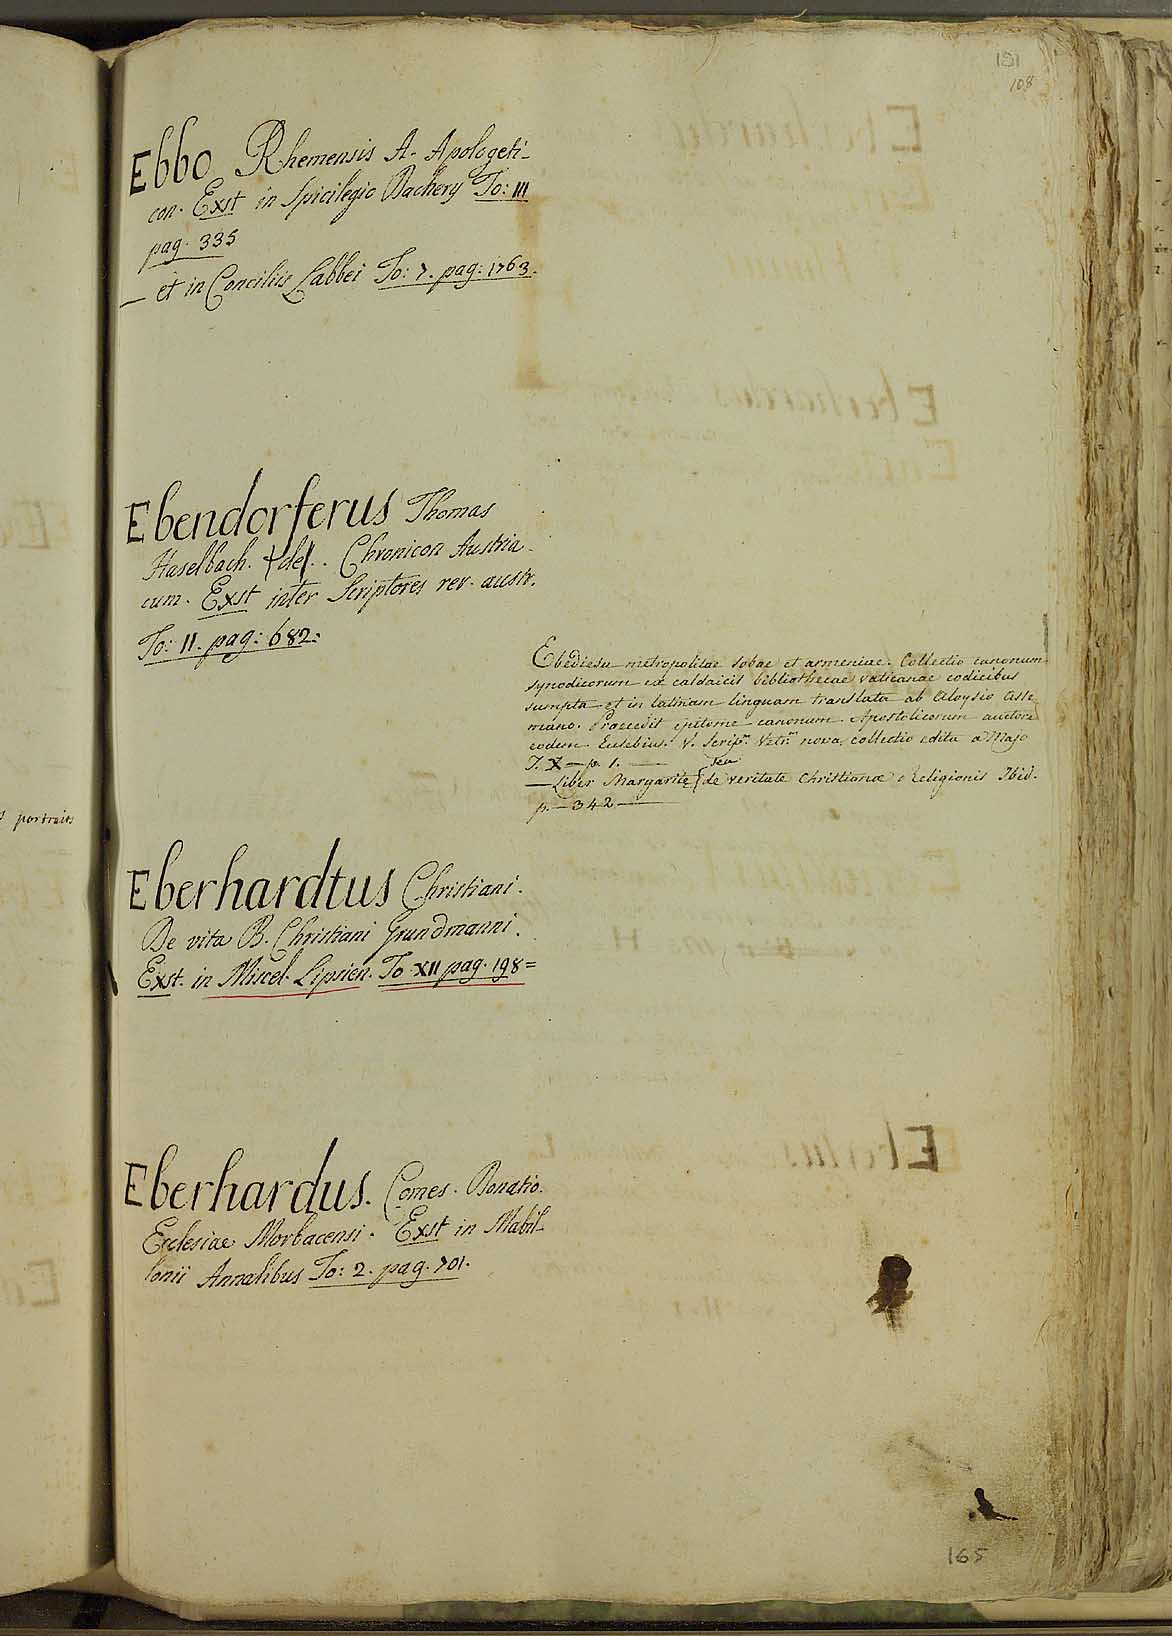 151
108
Ebbo Rhemensis A. Apologeti-
con. Exst in Spicilegio Dachery To: III
pag. 335
— et in Conciliis Labbei To: 7. pag: 1763.
Ebendorferus Thomas
Haselbach. de . . Chronicon Austria-
cum. Exst inter Scriptores rer. austr.
To: II. pag: 682:
Ebediesu metropolitae Sobae et armeniae. Collectio canonum
synodicorum ex caldaicis bibliothecae vaticanae codicibus
sumpta et in latinam linguam translata ab Aloysio Asse
mano. Praecedit epitome canonum Apostolicorum auctore
eodem Eusebius. V. Scrip.m Vetr.m nova collectio edita a Majo
T. X — p. 1. —
— Liber Margaritę seu de veritate Christianae Religionis Ibid.
p. — 342 —
portraits
Eberhardtus Christiani.
De vita B. Christiani Grundmanni.
Exst. in Miscel. Lipsien. To. XII pag. 198=
Eberhardus. Comes. Donatio.
Ecclesiae Morbacensi. Exst in Mabil-
lonii Annalibus To: 2. pag. 701.
165